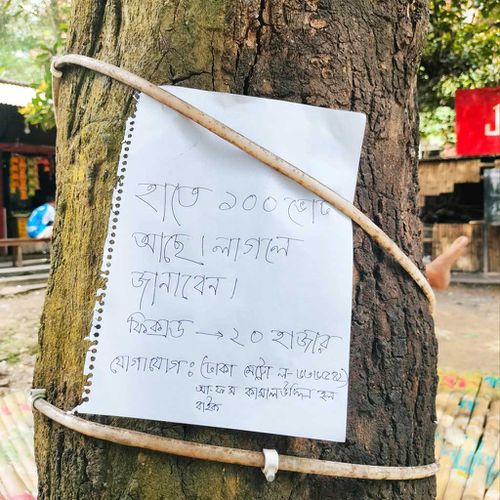 হাতে ১০০ ভোট
আছে। লাগলে
জানাবেন।
ফিক্সড → ২০ হাজার
যোগাযোগ: (ঢাকা মেট্রো ল-
আ ফ ম কামালউদ্দিন হল
বাইক
J